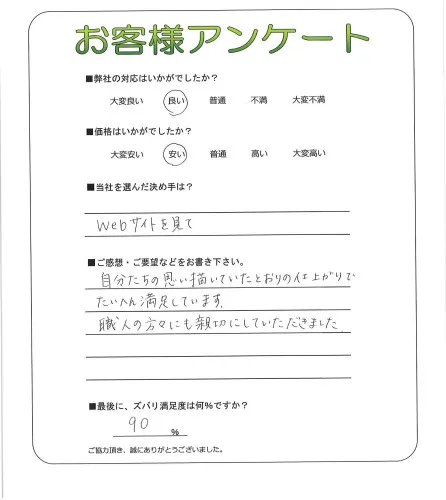 お客様アンケート
■弊社の対応はいかがでしたか？
大変良い 良い 普通 不満 大変不満
■価格はいかがでしたか？
大変安い 安い 普通 高い 大変高い
■当社を選んだ決め手は？
Webサイトを見て
■ご感想・ご要望などをお書き下さい。
自分たちの思い描いていたとおりの仕上がりで
たいへん満足しています。
職人の方々にも親切にしていただきました
■最後に、ズバリ満足度は何％ですか？
90 ％
ご協力頂き、誠にありがとうございました。